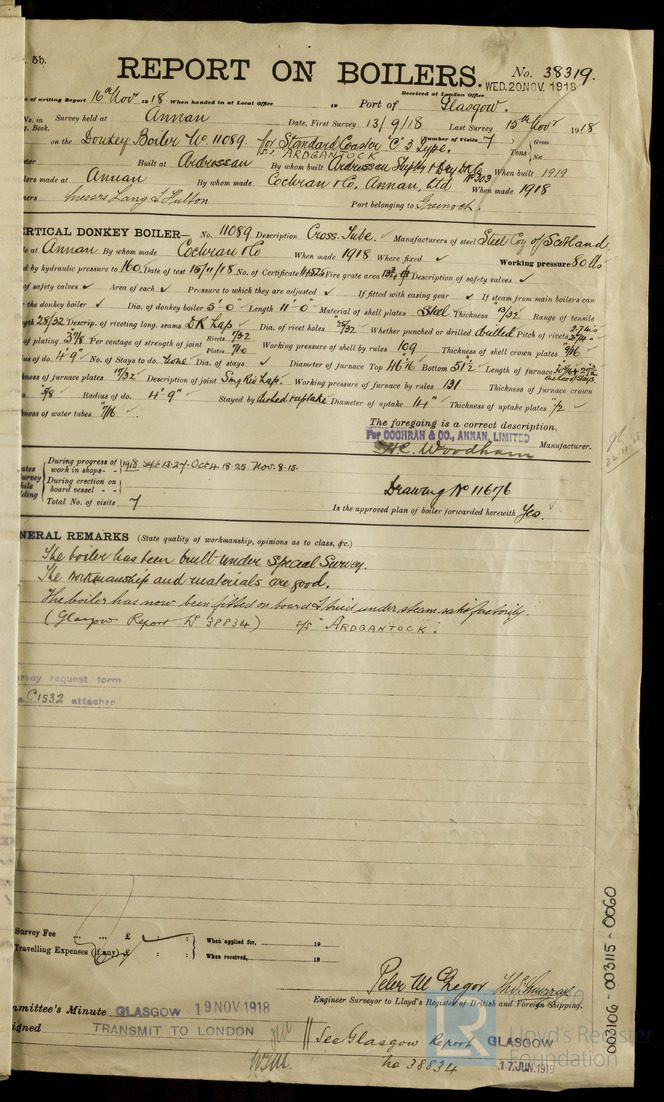 5b.
REPORT ON BOILERS.
No. 38319.
Received at London Office WED. 20 NOV. 1918
of writing Report 16th Nov 1918 When handed in at Local Office 19 Port of Glasgow.
No. in Survey held at Annan Date, First Survey 13/9/18 Last Survey 15th Novr 1918
Book. Number of Visits 7
on the Donkey Boiler No 11089. for Standard Coaster "C" 3 Type. Tons Gross Net
S.S. ARDGANTOCK
Built at Ardrossan By whom built Ardrossan No 303 When built 1919
made at Annan By whom made Cochran & Co. Annan, Ltd When made 1918
Messrs Lang & Fulton Port belonging to Greenock.
ERTICAL DONKEY BOILER— No. 11089 Description Cross Tube. Manufacturers of steel Steel Coy of Scotland
at Annan By whom made Cochran & Co When made 1918 Where fixed Working pressure 80 lbs
d by hydraulic pressure to 160. Date of test 15/11/18 No. of Certificate Fire grate area Description of safety valves
of safety valves Area of each Pressure to which they are adjusted If fitted with easing gear If steam from main boilers can
the donkey boiler Dia. of donkey boiler 5'-0" Length 11'-0" Material of shell plates Steel Thickness 13/32" Range of tensile
28/32 Descrip. of riveting long. seams DR Lap Dia. of rivet holes 25/32" Whether punched or drilled drilled Pitch of rivets
of plating Per centage of strength of joint Rivets Plates Working pressure of shell by rules 109 Thickness of shell crown plates 9/16"
us of do. 4'9" No. of Stays to do. None Dia. of stays Diameter of furnace Top Bottom Length of furnace
kness of furnace plates 17/32" Description of joint Sing Riv Lap. Working pressure of furnace by rules 131 Thickness of furnace crown
5/8" Radius of do. 4'-9" Stayed by dished & uptake Diameter of uptake 14" Thickness of uptake plates 1/2"
kness of water tubes 7/16"
The foregoing is a correct description,
For COCHRAN & CO., ANNAN, LIMITED
H.C. Woodham Manufacturer.
During progress of work in shops - - 1918 Sept. 13. 27. Oct. 4. 18. 25. Nov. 8. 15.
During erection on board vessel - -
Total No. of visits 7
Drawing No 11676
Is the approved plan of boiler forwarded herewith Yes.
NERAL REMARKS (State quality of workmanship, opinions as to class, &c.)
The boiler has been built under Special Survey.
The workmanship and materials are good.
The boiler has now been fitted on board & tried under steam satisfactorily.
(Glasgow Report No 38834) S/S "ARDGANTOCK".
rvey request form
C1532 attached
Survey Fee ... ... £ : : When applied for, 19
Travelling Expenses (if any) £ : : When received, 19
Peter McGregor Thos. Murray
Engineer Surveyor to Lloyd's Register of British and Foreign Shipping.
mmittee's Minute GLASGOW 19 NOV 1918
igned TRANSMIT TO LONDON
See Glasgow Report No 38834
GLASGOW
17 JUN. 1919
Lloyd's Register
Foundation
003106 - 003115 - 0060